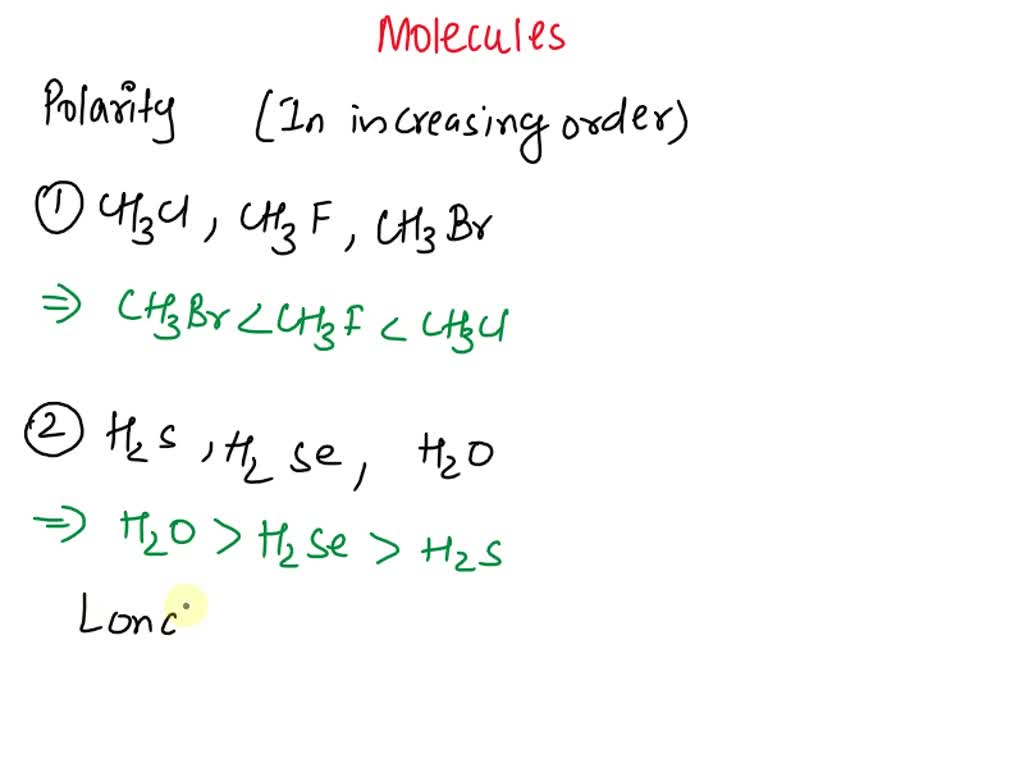 Molecules
Polarity (In increasing order)
① CH₃Cl, CH₃F, CH₃Br
⇒ CH₃Br < CH₃F < CH₃Cl
② H₂S, H₂Se, H₂O
⇒ H₂O > H₂Se > H₂S
Lonc